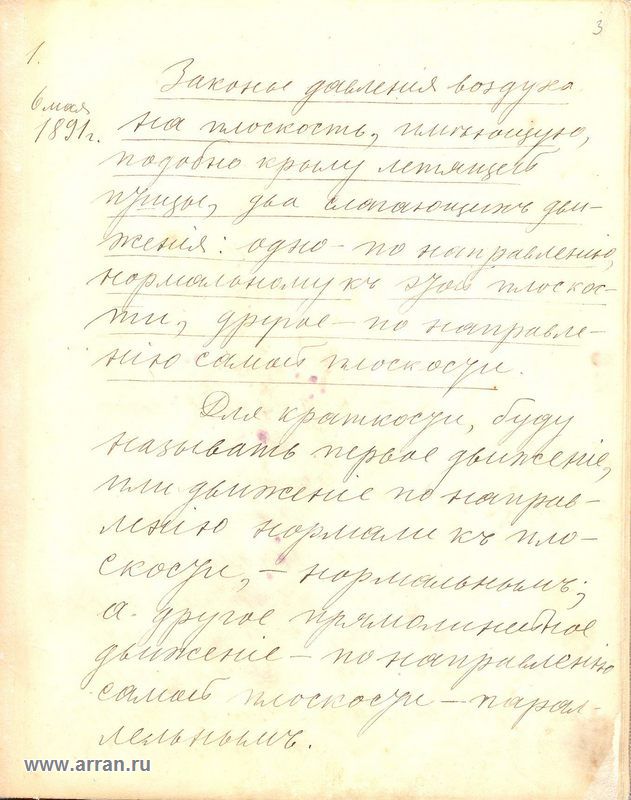 3
1.
6 мая
1891 г.
Законы давленія воздуха
на плоскость, имѣющую,
подобно крылу летящей
птицы, два слагающихъ дви-
женія: одно - по направленію,
нормальному къ этой плоскос-
ти, другое - по направле-
нію самой плоскости.
Для краткости, буду
называть первое движеніе,
или движеніе по направ-
ленію нормали къ пло-
скости, - нормальнымъ;
а другое прямолинейное
движеніе - по направленію
самой плоскости - парал-
лельнымъ.
www.arran.ru